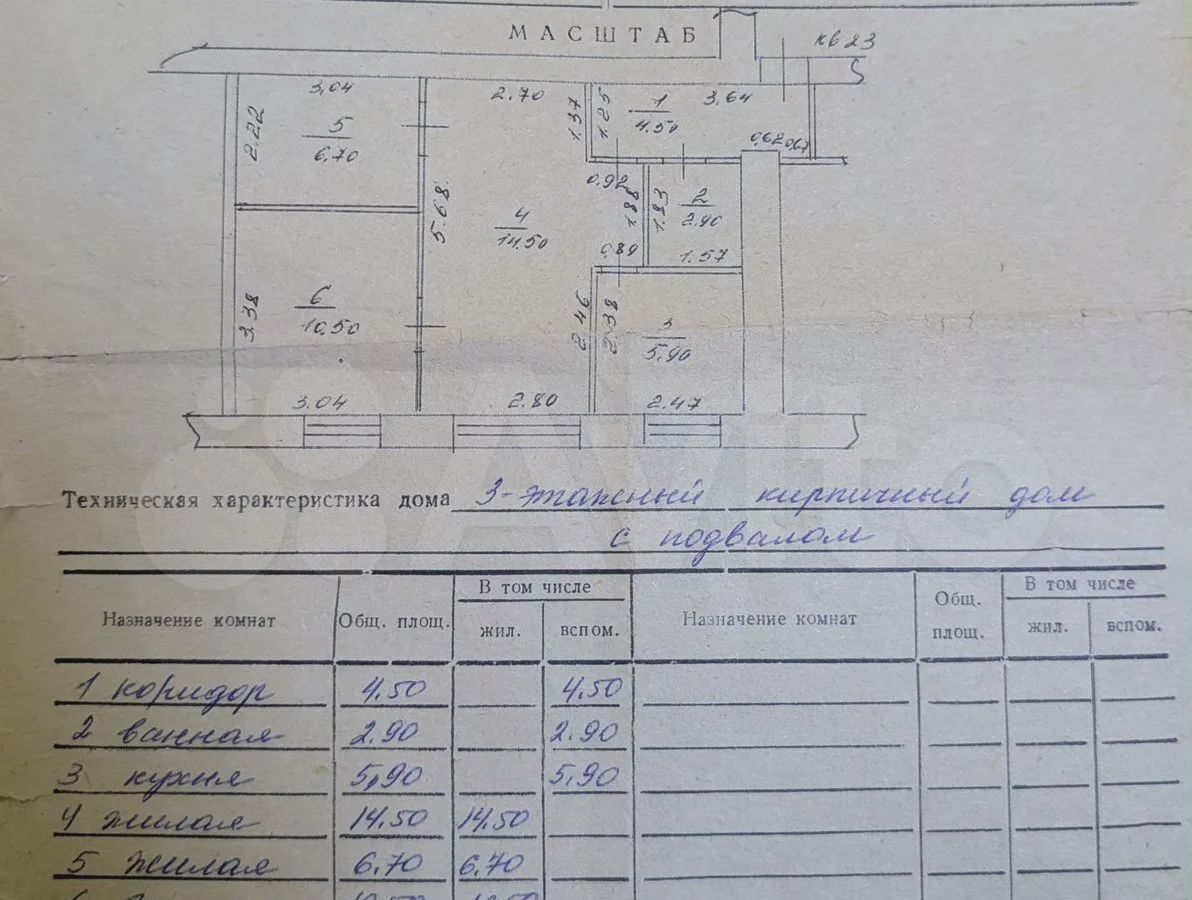 МАСШТАБ
кв 23
3,04
2.70
1 3.64
2.22
5
6,70
1.37
1.25
4.50
0,62 0,67
0,92
5.68
4
14.50
1.88
1.83
2
2.90
0,89
1.57
3.38
6
10,50
2.46
2.38
3
5.90
3.04
2.80
2.47
Avito
Техническая характеристика дома 3-этажный кирпичный дом
с подвалом
Назначение комнат Общ. площ. В том числе жил. вспом. Назначение комнат Общ. площ. В том числе жил. вспом.
1 коридор 4.50 4.50
2 ванная 2.90 2.90
3 кухня 5,90 5,90
4 жилая 14.50 14.50
5 жилая 6.70 6.70